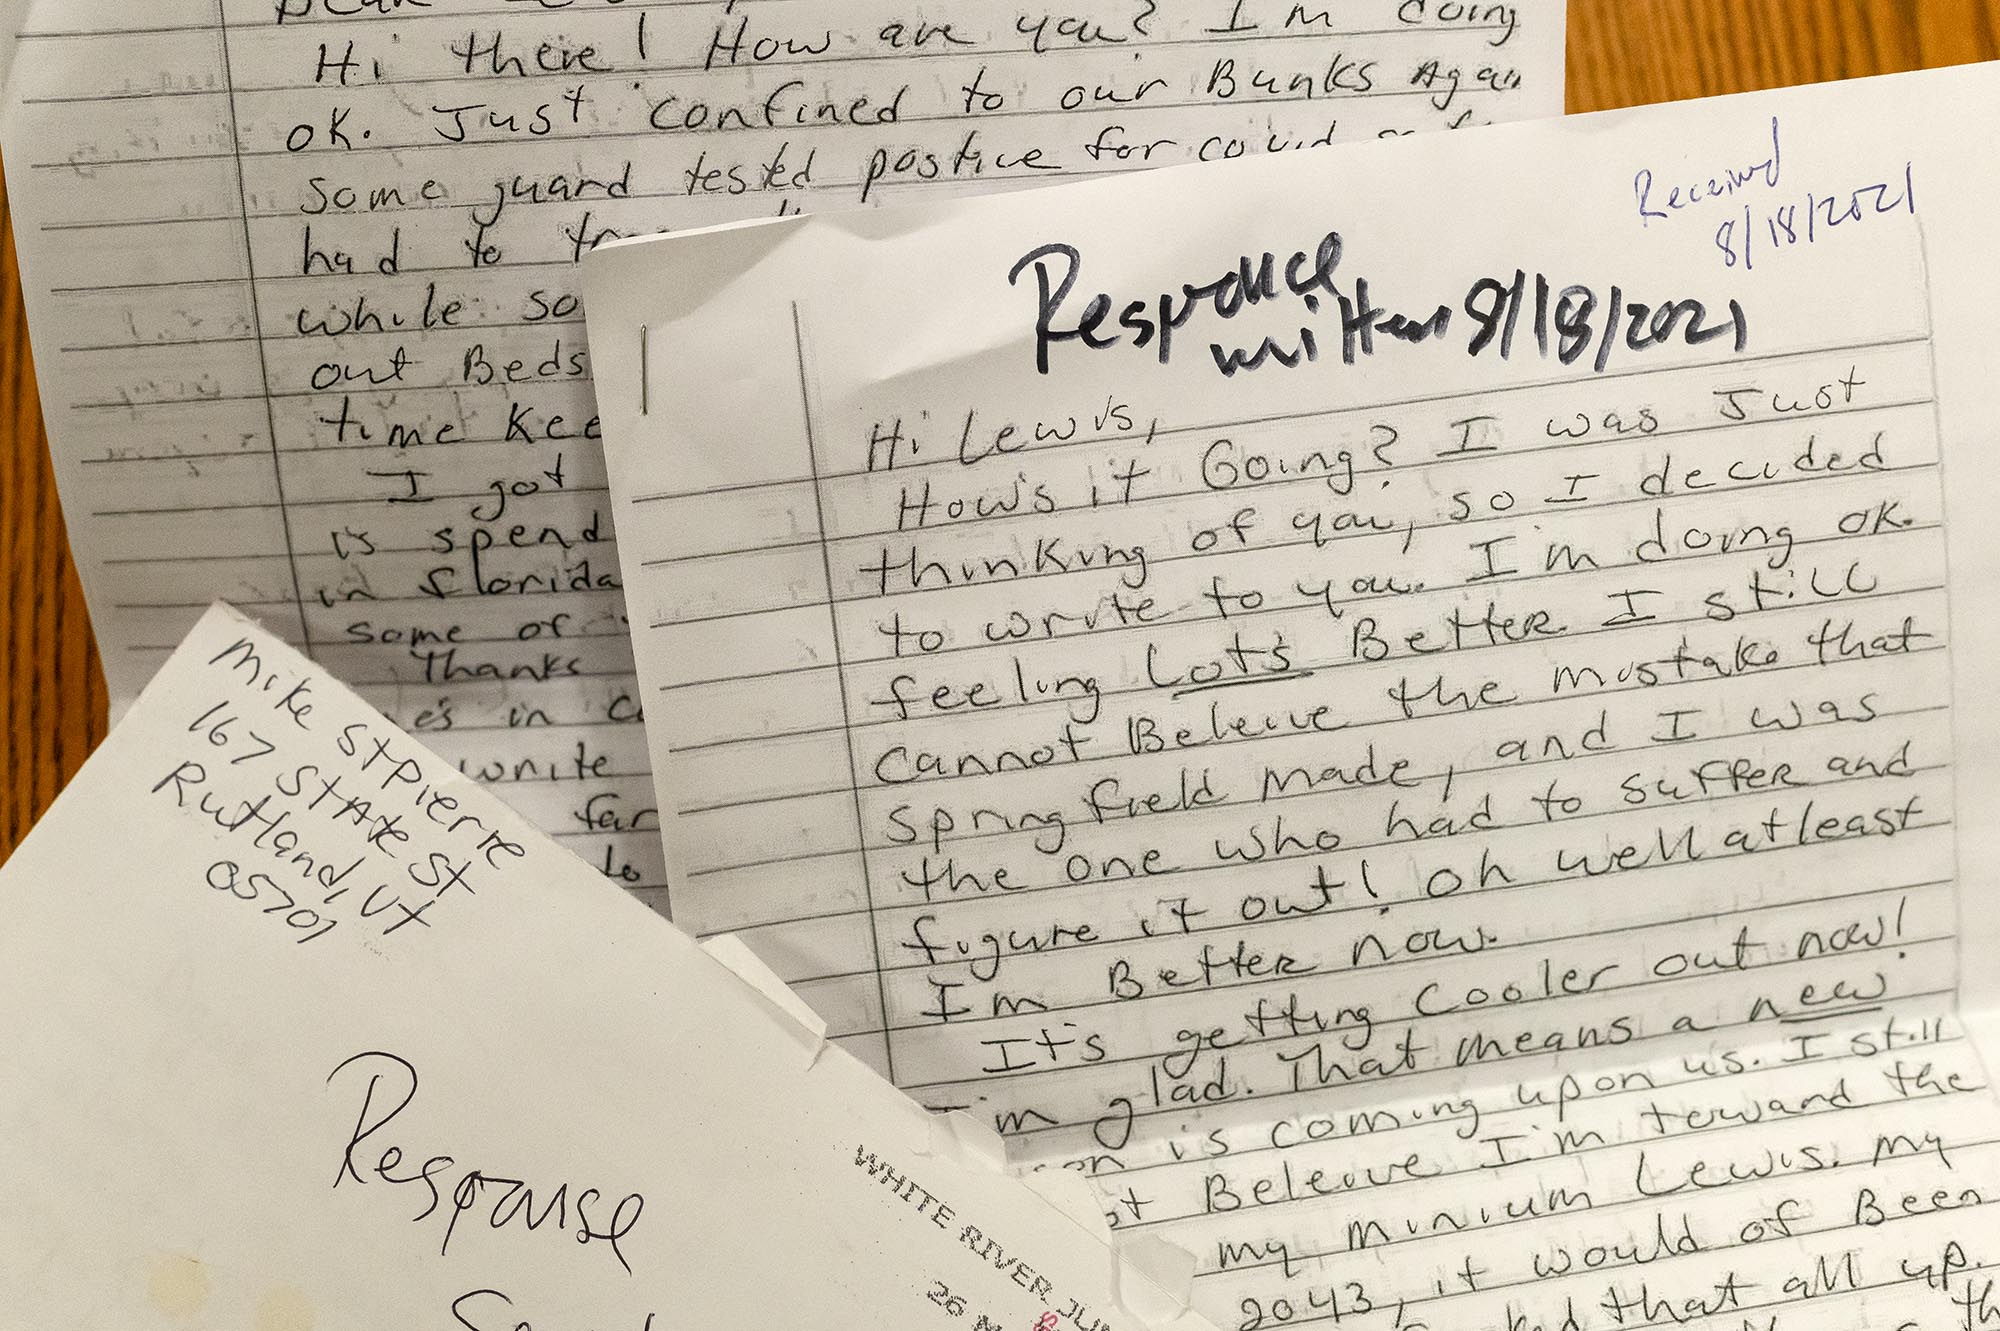 Hi there! How are you? I'm doing
OK. Just confined to our Bunks Again
some guard tested postive for covid
had to
while so
out Beds
time Kee
I got
is spend
in florida
some of
Thanks
in
write
far
to
Received
8/18/2021
Response
written 8/18/2021
Hi Lewis,
How's it Going? I was Just
thinking of you, so I decided
to write to you. I'm doing OK.
feeling Lots Better. I still
cannot Beleive the mistake that
Springfield made, and I was
the one who had to suffer and
figure it out! Oh well atleast
I'm Better now.
It's getting Cooler out now!
I'm glad. That means a new
is coming upon us. I still
Beleive I'm toward the
my minium Lewis. my
2043, it would of Been
that all up.
Mike St Pierre
167 State St
Rutland, Vt
05701
Response
WHITE RIVER JUN
26 M